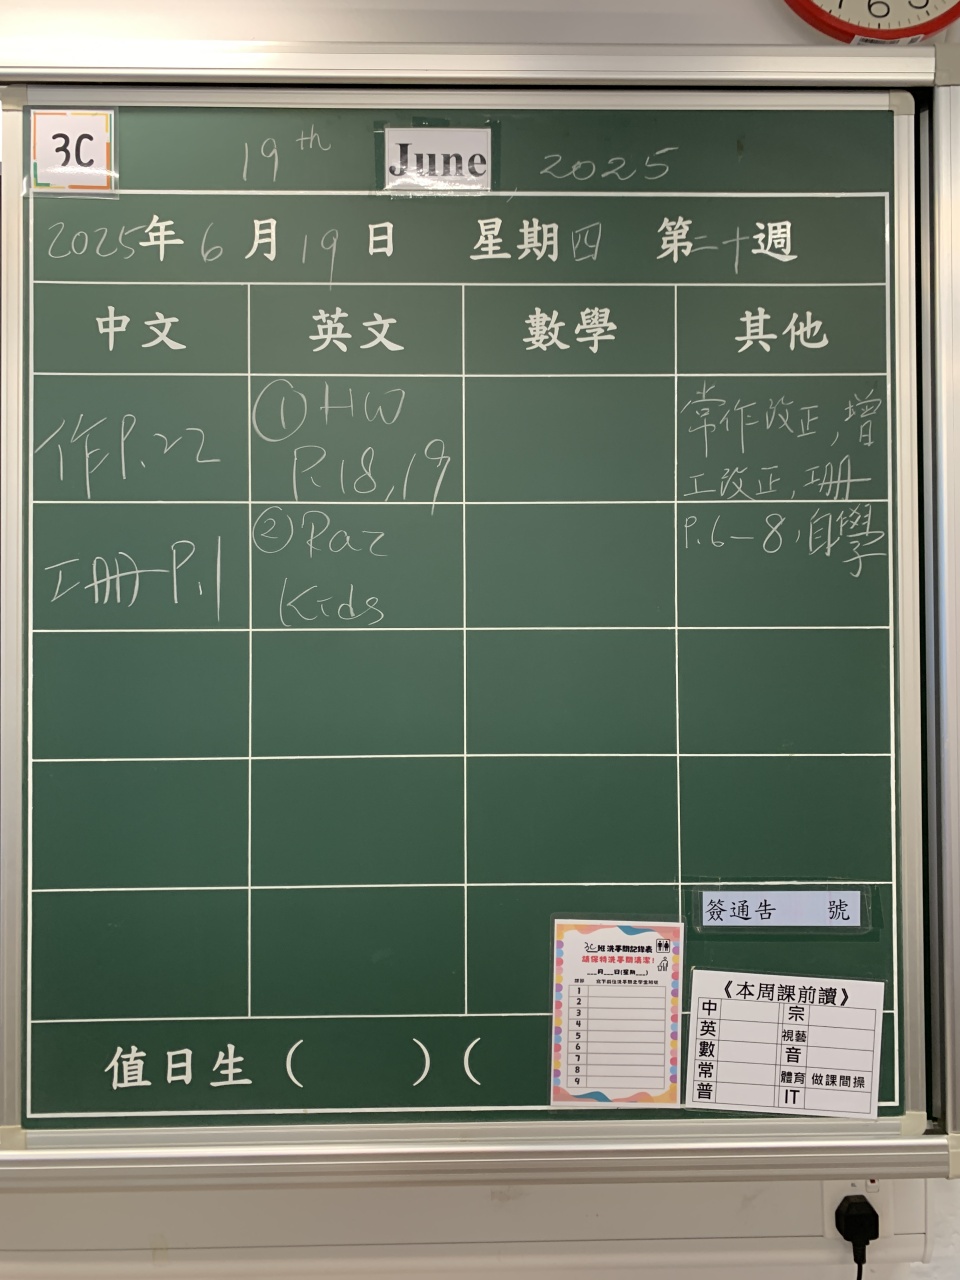 3C
19th June, 2025
2025年6月19日 星期四 第二十週
中文 英文 數學 其他
作P.22
工冊P.1
① HW
P.18,19
② Raz
Kids
常作改正,增
工改正,工冊
P.6-8,自學
簽通告 號
3C班洗手間記錄表
請保持洗手間清潔!
___月___日(星期___)
1
2
3
4
5
6
7
8
9
《本周課前讀》
中 宗
英 視藝
數 音
常 體育 做課間操
普 IT
值日生( )(